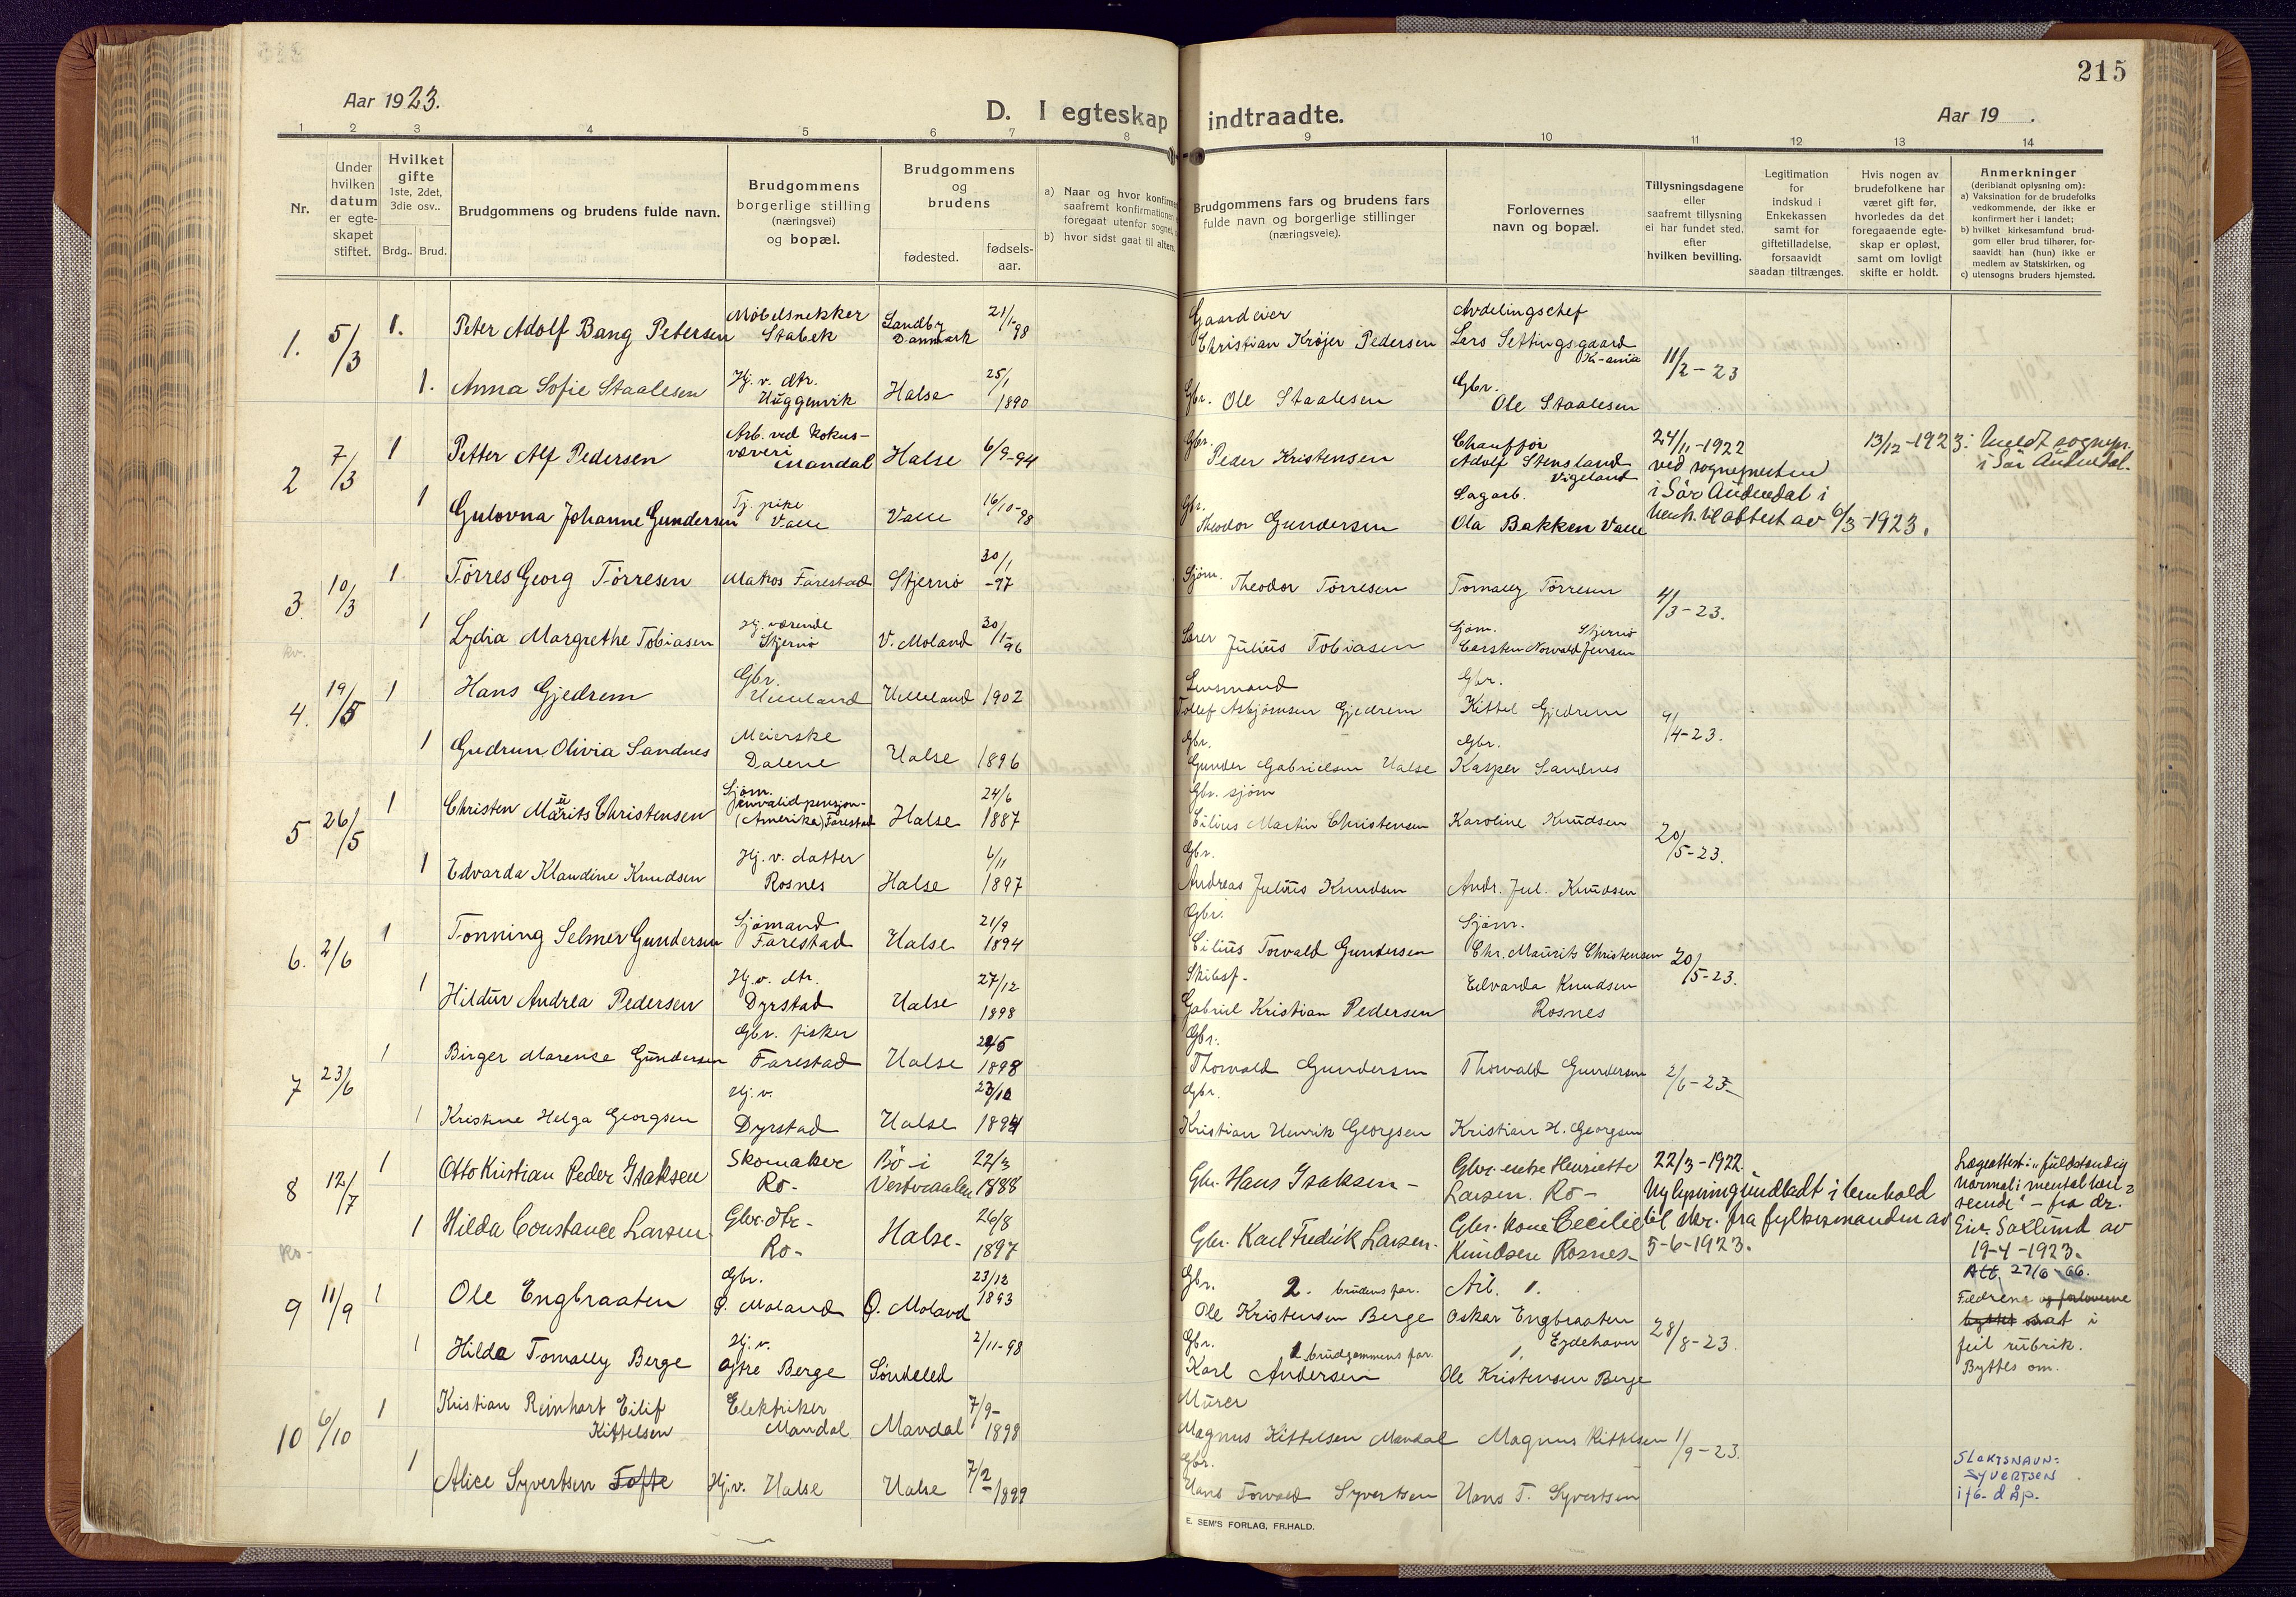 215
Aar 1923.
D. I egteskap indtraadte.
Aar 19 .
1 2 3 4 5 6 7 8 9 10 11 12 13 14
Nr.
Under
hvilken
datum
er egte-
skapet
stiftet.
Hvilket
gifte
1ste, 2det,
3die osv..
Brdg.. Brud.
Brudgommens og brudens fulde navn.
Brudgommens
borgerlige stilling
(næringsvei)
og bopæl.
Brudgommens
og
brudens
fødested.
fødsels-
aar.
a) Naar og hvor konfirme
saafremt konfirmationen
foregaat utenfor sognet,
b) hvor sidst gaat til alters.
Brudgommens fars og brudens fars
fulde navn og borgerlige stillinger
(næringsveie).
Forlovernes
navn og bopæl.
Tillysningsdagene
eller
saafremt tillysning
ei har fundet sted.
efter
hvilken bevilling.
Legitimation
for
indskud i
Enkekassen
samt for
giftetilladelse,
forsaavidt
saadan tiltrænges.
Hvis nogen av
brudefolkene har
været gift før,
hvorledes da det
foregaaende egte-
skap er opløst,
samt om lovligt
skifte er holdt.
Anmerkninger
(deriblandt oplysning om):
a) Vaksination for de brudefolks
vedkommende, der ikke er
konfirmert her i landet;
b) hvilket kirkesamfund brud-
gom eller brud tilhører, for-
saavidt han (hun) ikke er
medlem av Statskirken, og
c) utensogns bruders hjemsted.
1. 5/3 1. Peter Adolf Bang Petersen
Møbelsnekker
Stabek
Landby
Danmark
21/1-98
Gaardeier
Christian Krøjer Pedersen
Avdelingschef
Lars Settingsgaard
Kr-ania
11/2-23
1. Anna Sofie Staalesen
Hj. v. dtr.
Uuggenvik
Halse
25/1
1890
Gbr. Ole Staalesen
Gbr.
Ole Staalesen
2 7/3 1 Petter Alf Pedersen
Arb. ved kokus-
væveri
Mandal
Halse
6/9-94
Gbr.
Peder Kristensen
Chauffør
Adolf Stensland
Vigeland
24/11-1922
ved sognepresten
i Sør Audnedal i
13/12-1923: Meldt sognepr.
i Sør Audnedal.
1 Gulovna Johanne Gundersen
Tj. pike
Valle
Valle
16/10-98
Gbr.
Theodor Gundersen
Sagarb.
Ola Bakken Valle
attest av 6/3-1923.
3. 10/3 1 Tørres Georg Tørresen
Matros Farestad
Skjernø
30/1
-97
Sjøm.
Theodor Tørresen
Tomally Tørresen
4/3-23.
1 Lydia Margrethe Tobiasen
Hj. værende
Skjernø
V. Moland
30/1-96
Julius Tobiasen
Sjøm. Skjernø
Carsten Norvald Jensen
4. 19/5 1 Hans Gjedrem
Gbr.
Helleland
Helleland
1902
Lensmand
Tollef Asbjørnsen Gjedrem
Gbr.
Kittel Gjedrem
9/4-23.
1 Gudrun Olivia Sandnes
Meierske
Dalene
Halse
1896
Gbr.
Gunder Gabrielsen Halse
Gbr.
Kasper Sandnes
5 26/5 1 Christen Maurits Christensen
Sjøm.
invalidpensjon-
(Amerika) Farestad
Halse
24/6
1887
Gbr. sjøm
Cilius Martin Christensen
Karoline Knudsen
20/5-23.
1 Edvarda Klaudine Knudsen
Hj. v. datter
Rosnes
Halse
6/11
1897
Gbr.
Andreas Julius Knudsen
Andr. Jul. Knudsen
6. 2/6 1 Tønning Selmer Gundersen
Sjømand
Farestad
Halse
21/9
1894
Gbr.
Cilius Torvald Gundersen
Sjøm.
Chr. Maurits Christensen
20/5-23.
1 Hildur Andrea Pedersen
Hj. v. dtr.
Dyrstad
Halse
27/12
1898
Skibsf.
Gabriel Kristian Pedersen
Edvarda Knudsen
Rosnes
7 23/6 1 Birger Marense Gundersen
Gbr. fisker
Farestad
Halse
1898
Gbr.
Thorvald Gundersen
Thorvald Gundersen
2/6-23-
1 Kristine Helga Georgsen
Hj. v.
Dyrstad
Halse
23/10
1894
Gbr.
Kristian Henrik Georgsen
Kristian H. Georgsen
8 12/7 1 Otto Kristian Peder Isaksen
Skomaker
Ro-
Bø i
Vesteraalen
22/3
1888
Gbr. Hans Isaksen -
Gbr. enke Henriette
Larsen. Ro-
22/3-1922.
Ny lysning undladt i henhold
til skr. fra fylkesmanden av
5-6-1923.
Lægeattest: "fuldstendig
normal i mental hen-
seende" - fra dr.
Eiv. Saxlund av
19-4-1923.
1 Hilda Constance Larsen
Gbr. dtr-
Ro-
Halse-
26/8
1897
Gbr. Karl Fredrik Larsen.
Gbr. kone Cecilie
Knudsen Rosnes-
Att. 27/6-66.
9 11/9 1 Ole Engbraaten
Gbr.
Ø. Moland
Ø. Moland
23/12
1893
Gbr. 2. brudens far.
Ole Kristensen Berge
Arb. 1.
Oskar Engbraaten
Eydehavn
28/8-23.
Fædrene og forloverne
byttet sat i
feil rubrik.
Byttes om.
1 Hilda Tomally Berge
Hj. v.
Øfre Berge
Søndeled
2/11-98
Gbr. 1 brudgommens far.
Karl Andersen
1.
Ole Kristensen Berge
10 6/10 1 Kristian Reinhart Eilif
Kittelsen
Elektriker
Mandal
Mandal
7/9-
1898
Murer
Magnus Kittelsen Mandal
Magnus Kittelsen
1/9-23.
1 Alice Syvertsen Tofte
Hj. v. Halse
Halse
7/2-1899
Gbr.
Hans Torvald Syvertsen
Hans T. Syvertsen
SLEKTSNAVN:
SYVERTSEN
ifg. dåp.
E. SEM'S FORLAG, FR.HALD.